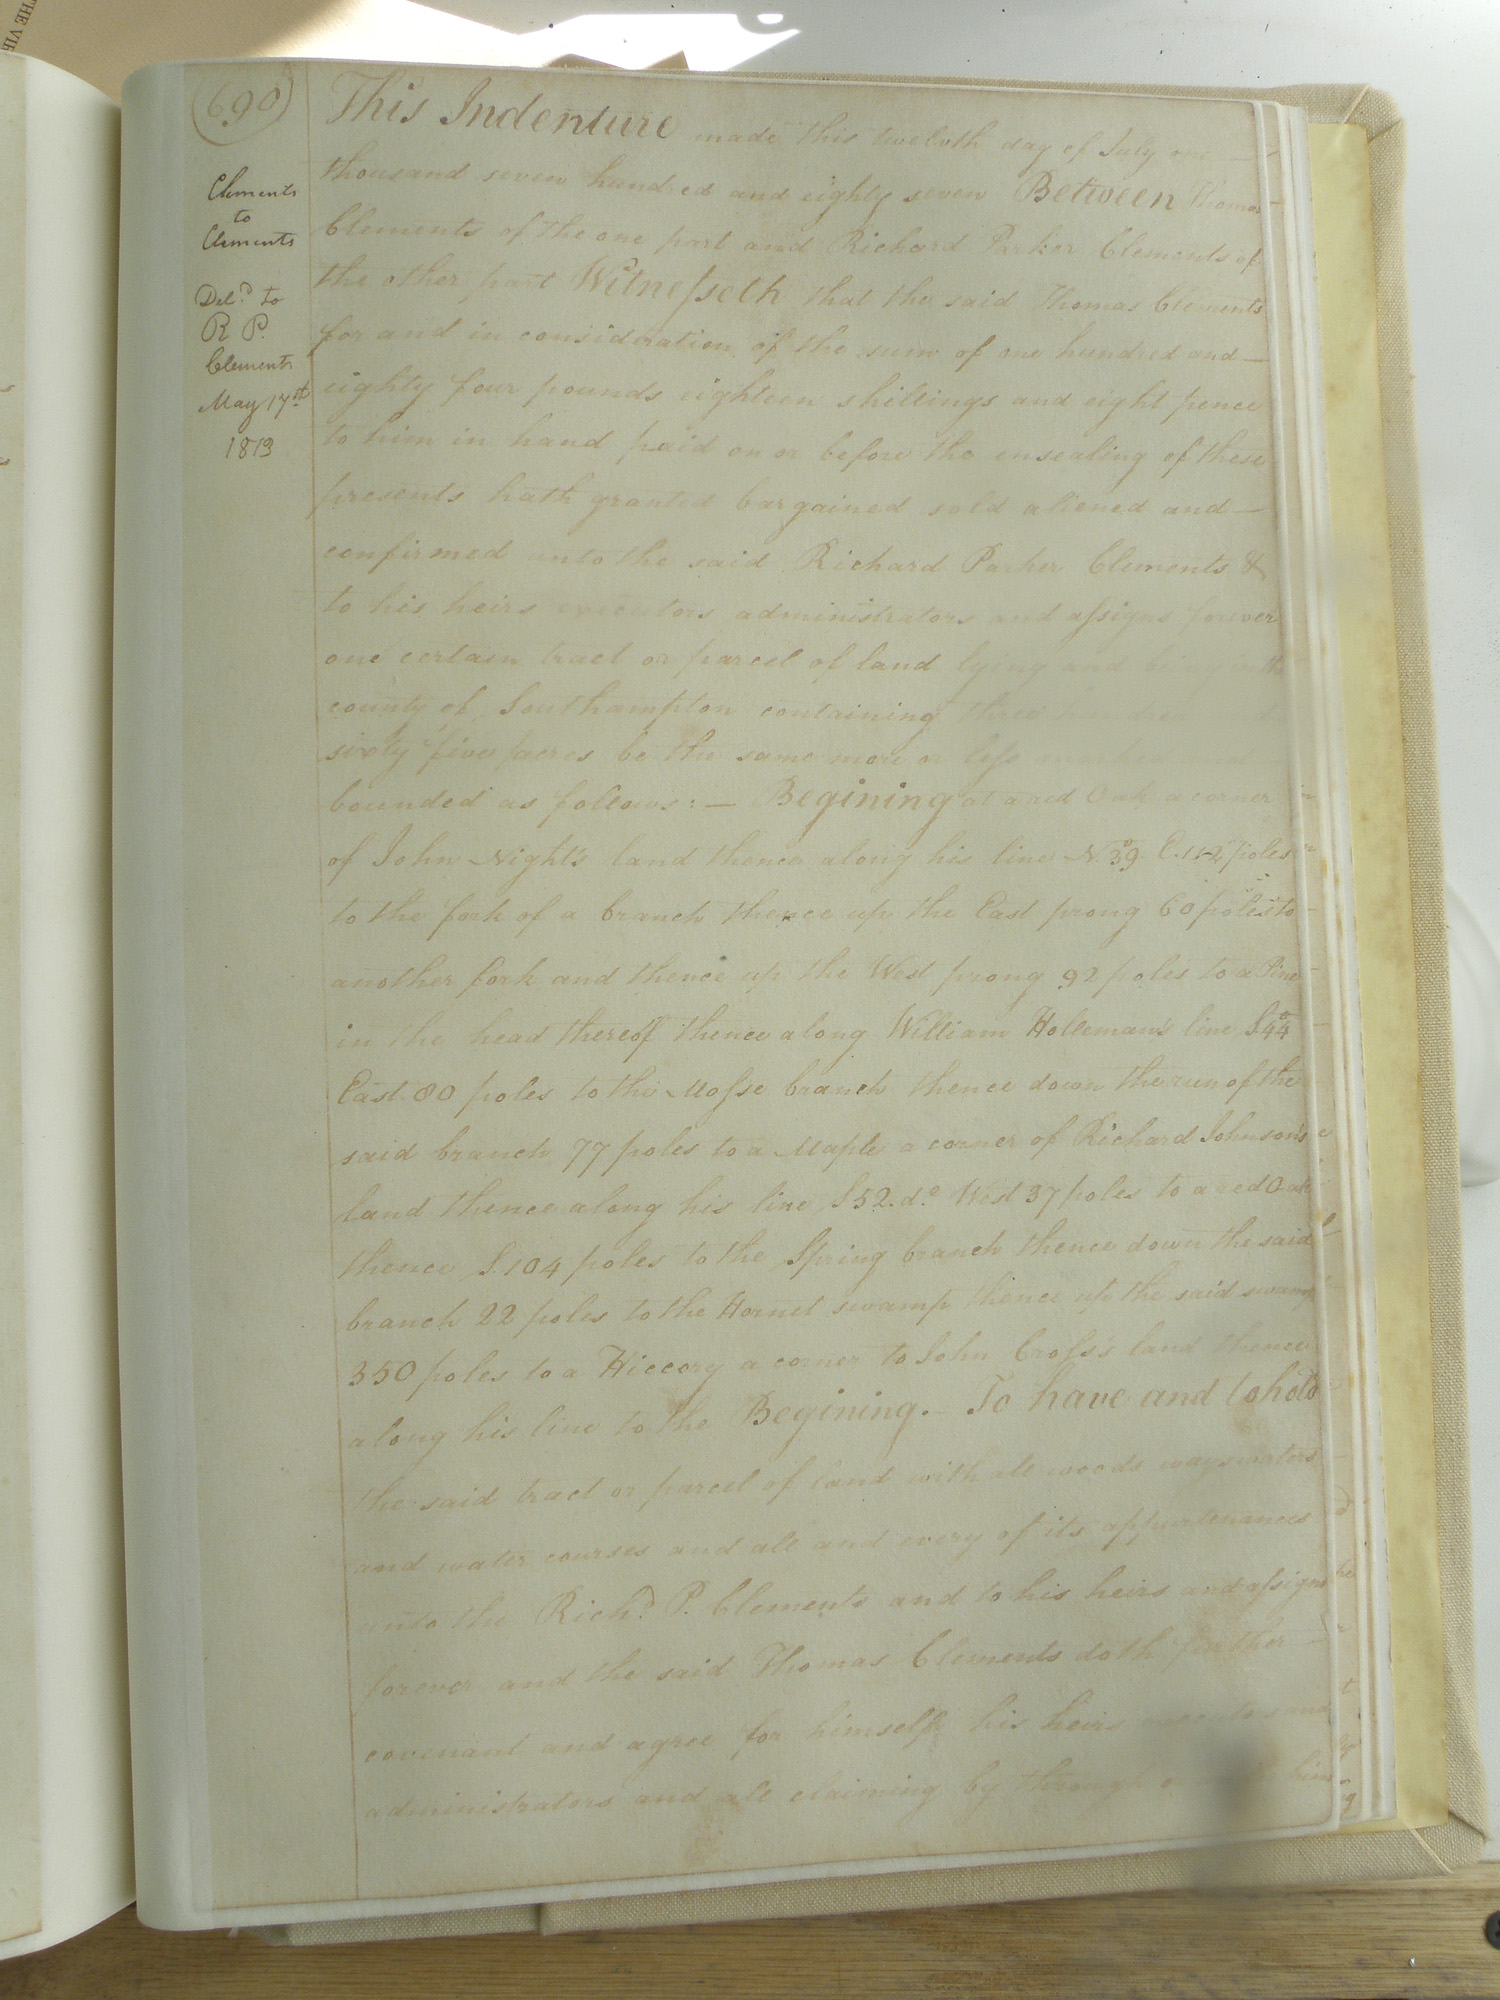 690
Clements
to
Clements
Del.d to
R P.
Clements
May 17th
1813
This Indenture made this twelvth day of July one
thousand seven hundred and eighty seven Between Thomas
Clements of the one part and Richard Parker Clements of
the other part Witnesseth that the said Thomas Clements
for and in consideration of the sum of one hundred and
eighty four pounds eighteen shillings and eight pence
to him in hand paid on or before the ensealing of these
presents hath granted bargained sold aliened and
confirmed unto the said Richard Parker Clements &
to his heirs executors administrators and assigns forever
one certain tract or parcel of land lying and being in the
county of Southampton containing three hundred and
sixty five acres be the same more or less
bounded as follows: — Begining at a red Oak a corner
of John Night's land thence along his line N. 39° E. 112 poles
to the fork of a branch thence up the East prong 60 poles to
another fork and thence up the West prong 92 poles to a Pine
in the head thereof thence along William Holleman's line S 44°
East 80 poles to the Mosse branch thence down the run of the
said branch 77 poles to a Maple a corner of Richard Johnson's
land thence along his line S 52. d.o West 37 poles to a red Oak
thence S. 104 poles to the Spring branch thence down the said
branch 22 poles to the Hornet swamp thence up the said swamp
350 poles to a Hiccory a corner to John Cross's land thence
along his line to the Begining. — To have and to hold
the said tract or parcel of land with all woods ways waters
and water courses and all and every of its appurtenances
unto the Rich.d P. Clements and to his heirs and assigns
forever and the said Thomas Clements doth further
covenant and agree for himself his heirs executors and
administrators and all claiming by through or him